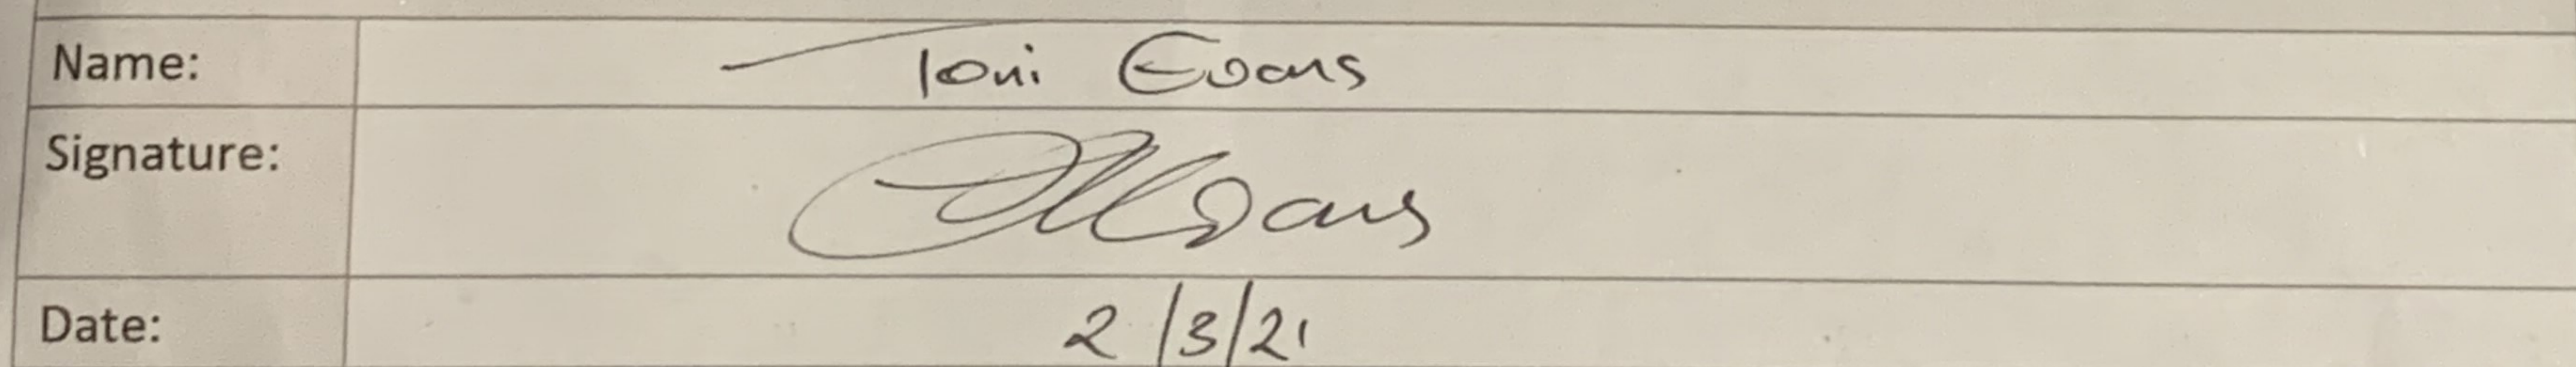 Name: Toni Evans
Signature: Evans
Date: 2/3/21